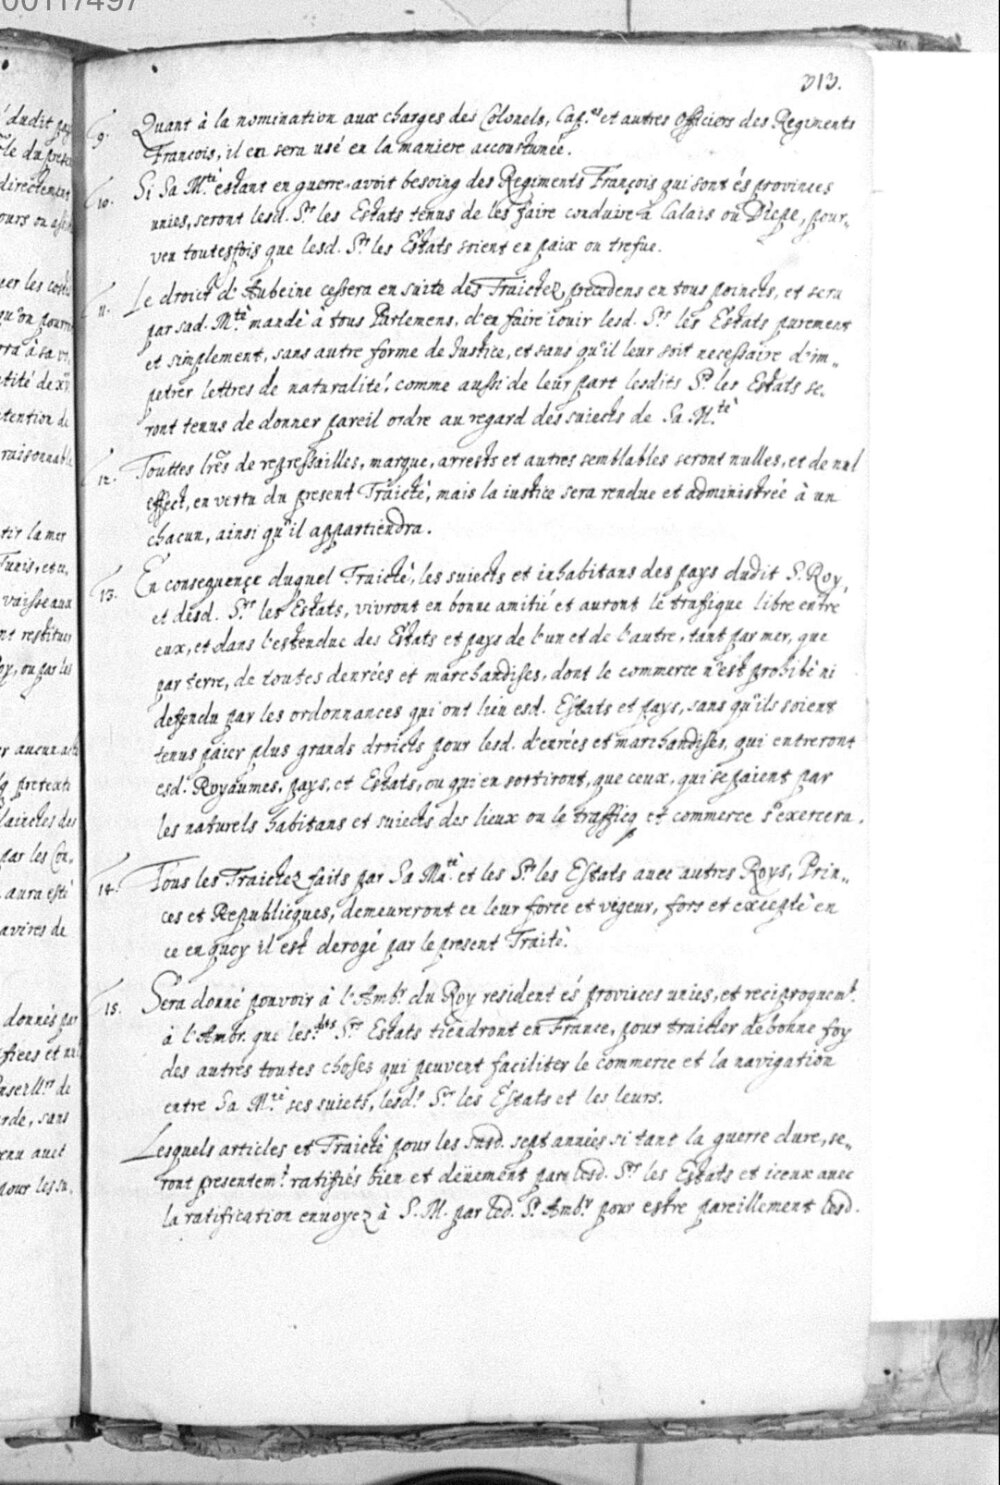 00117497
313.
9. Quant à la nomination aux charges des Colonels, Cap.nes et autres officiers des Regiments
François, il en sera usé en la maniere accoustumée.
10. Si Sa M.té estant en guerre avoit besoing des Regiments François qui sont és provinces
unies, seront lesd. Srs les Estats tenus de les faire conduire à Calais ou Diepe, pour-
veu toutesfois que lesd. Srs les Estats soient en paix ou trefue.
11. Le droict d'Aubeine cessera en suite des Traictez precedens en tous poincts, et sera
par sad. M.té mandé à tous Parlemens, d'en faire iouir lesd. Srs les Estats purement
et simplement, sans autre forme de Justice, et sans qu'il leur soit necessaire d'im-
petrer lettres de naturalité, comme aussi de leur part lesdits Srs les Estats se-
ront tenus de donner pareil ordre au regard des suiects de Sa M.té
12. Touttes lres de repressailles, marque, arrests et autres semblables seront nulles, et de nul
effect, en vertu du present Traicté, mais la iustice sera rendue et administrée à un
chacun, ainsi qu'il appartiendra.
13. En consequence duquel Traicté, les suiects et inhabitans des pays dudit S. Roy,
et desd. Srs les Estats, vivront en bonne amitié et auront le trafique libre entre
eux, et dans l'estendue des Estats et pays de l'un et de l'autre, tant par mer, que
par terre, de toutes denrées et marchandises, dont le commerce n'est prohibé ni
defendu par les ordonnances qui ont lieu esd. Estats et pays, sans qu'ils soient
tenus paier plus grands droicts pour lesd. denrées et marchandises, qui entreront
esd. Royaumes, pays, et Estats, ou qui en sortiront, que ceux, qui se paient par
les naturels habitans et suiects des lieux ou le trafficq et commerce s'exercera.
14. Tous les Traictez faits par Sa Ma.té et les Srs les Estats avec autres Roys, Prin-
ces et Republicques, demeureront en leur force et vigeur, fors et excepté en
ce en quoy il est derogé par le present Traité.
15. Sera donné pouvoir à l'Ambr. du Roy resident és provinces unies, et reciproquemt.
à l'Ambr. que lesd. Srs Estats tiendront en France, pour traicter de bonne foy
des autres toutes choses qui peuvent faciliter le commerce et la navigation
entre Sa M.té ses suiets, lesd. Srs les Estats et les leurs.
Lesquels articles et Traicté pour les susd. sept années si tant la guerre dure, se-
ront presentemt. ratifiés bien et deüement par lesd. Srs les Estats et iceux avec
la ratification envoyez à S. M. par led. Sr. Ambr. pour estre pareillement lesd.